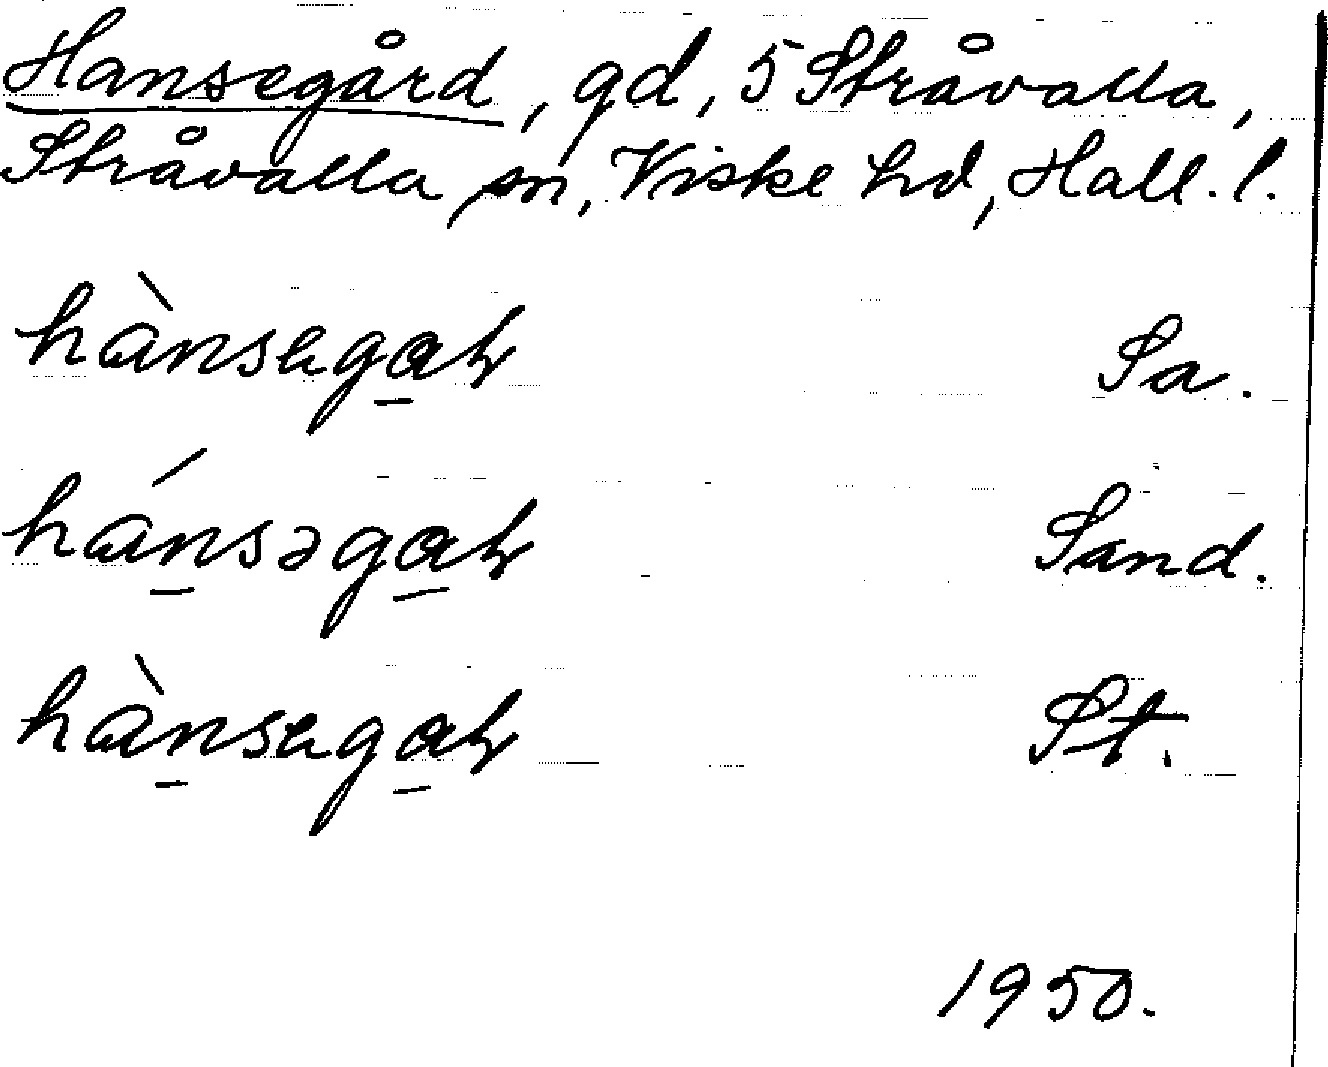 Hansegård, gd, 5 Stråvalla,
Stråvalla sn, Viske hd, Hall. l.
hànsegar Sa.
hánsəgar Sand.
hànsegar St.
1950.